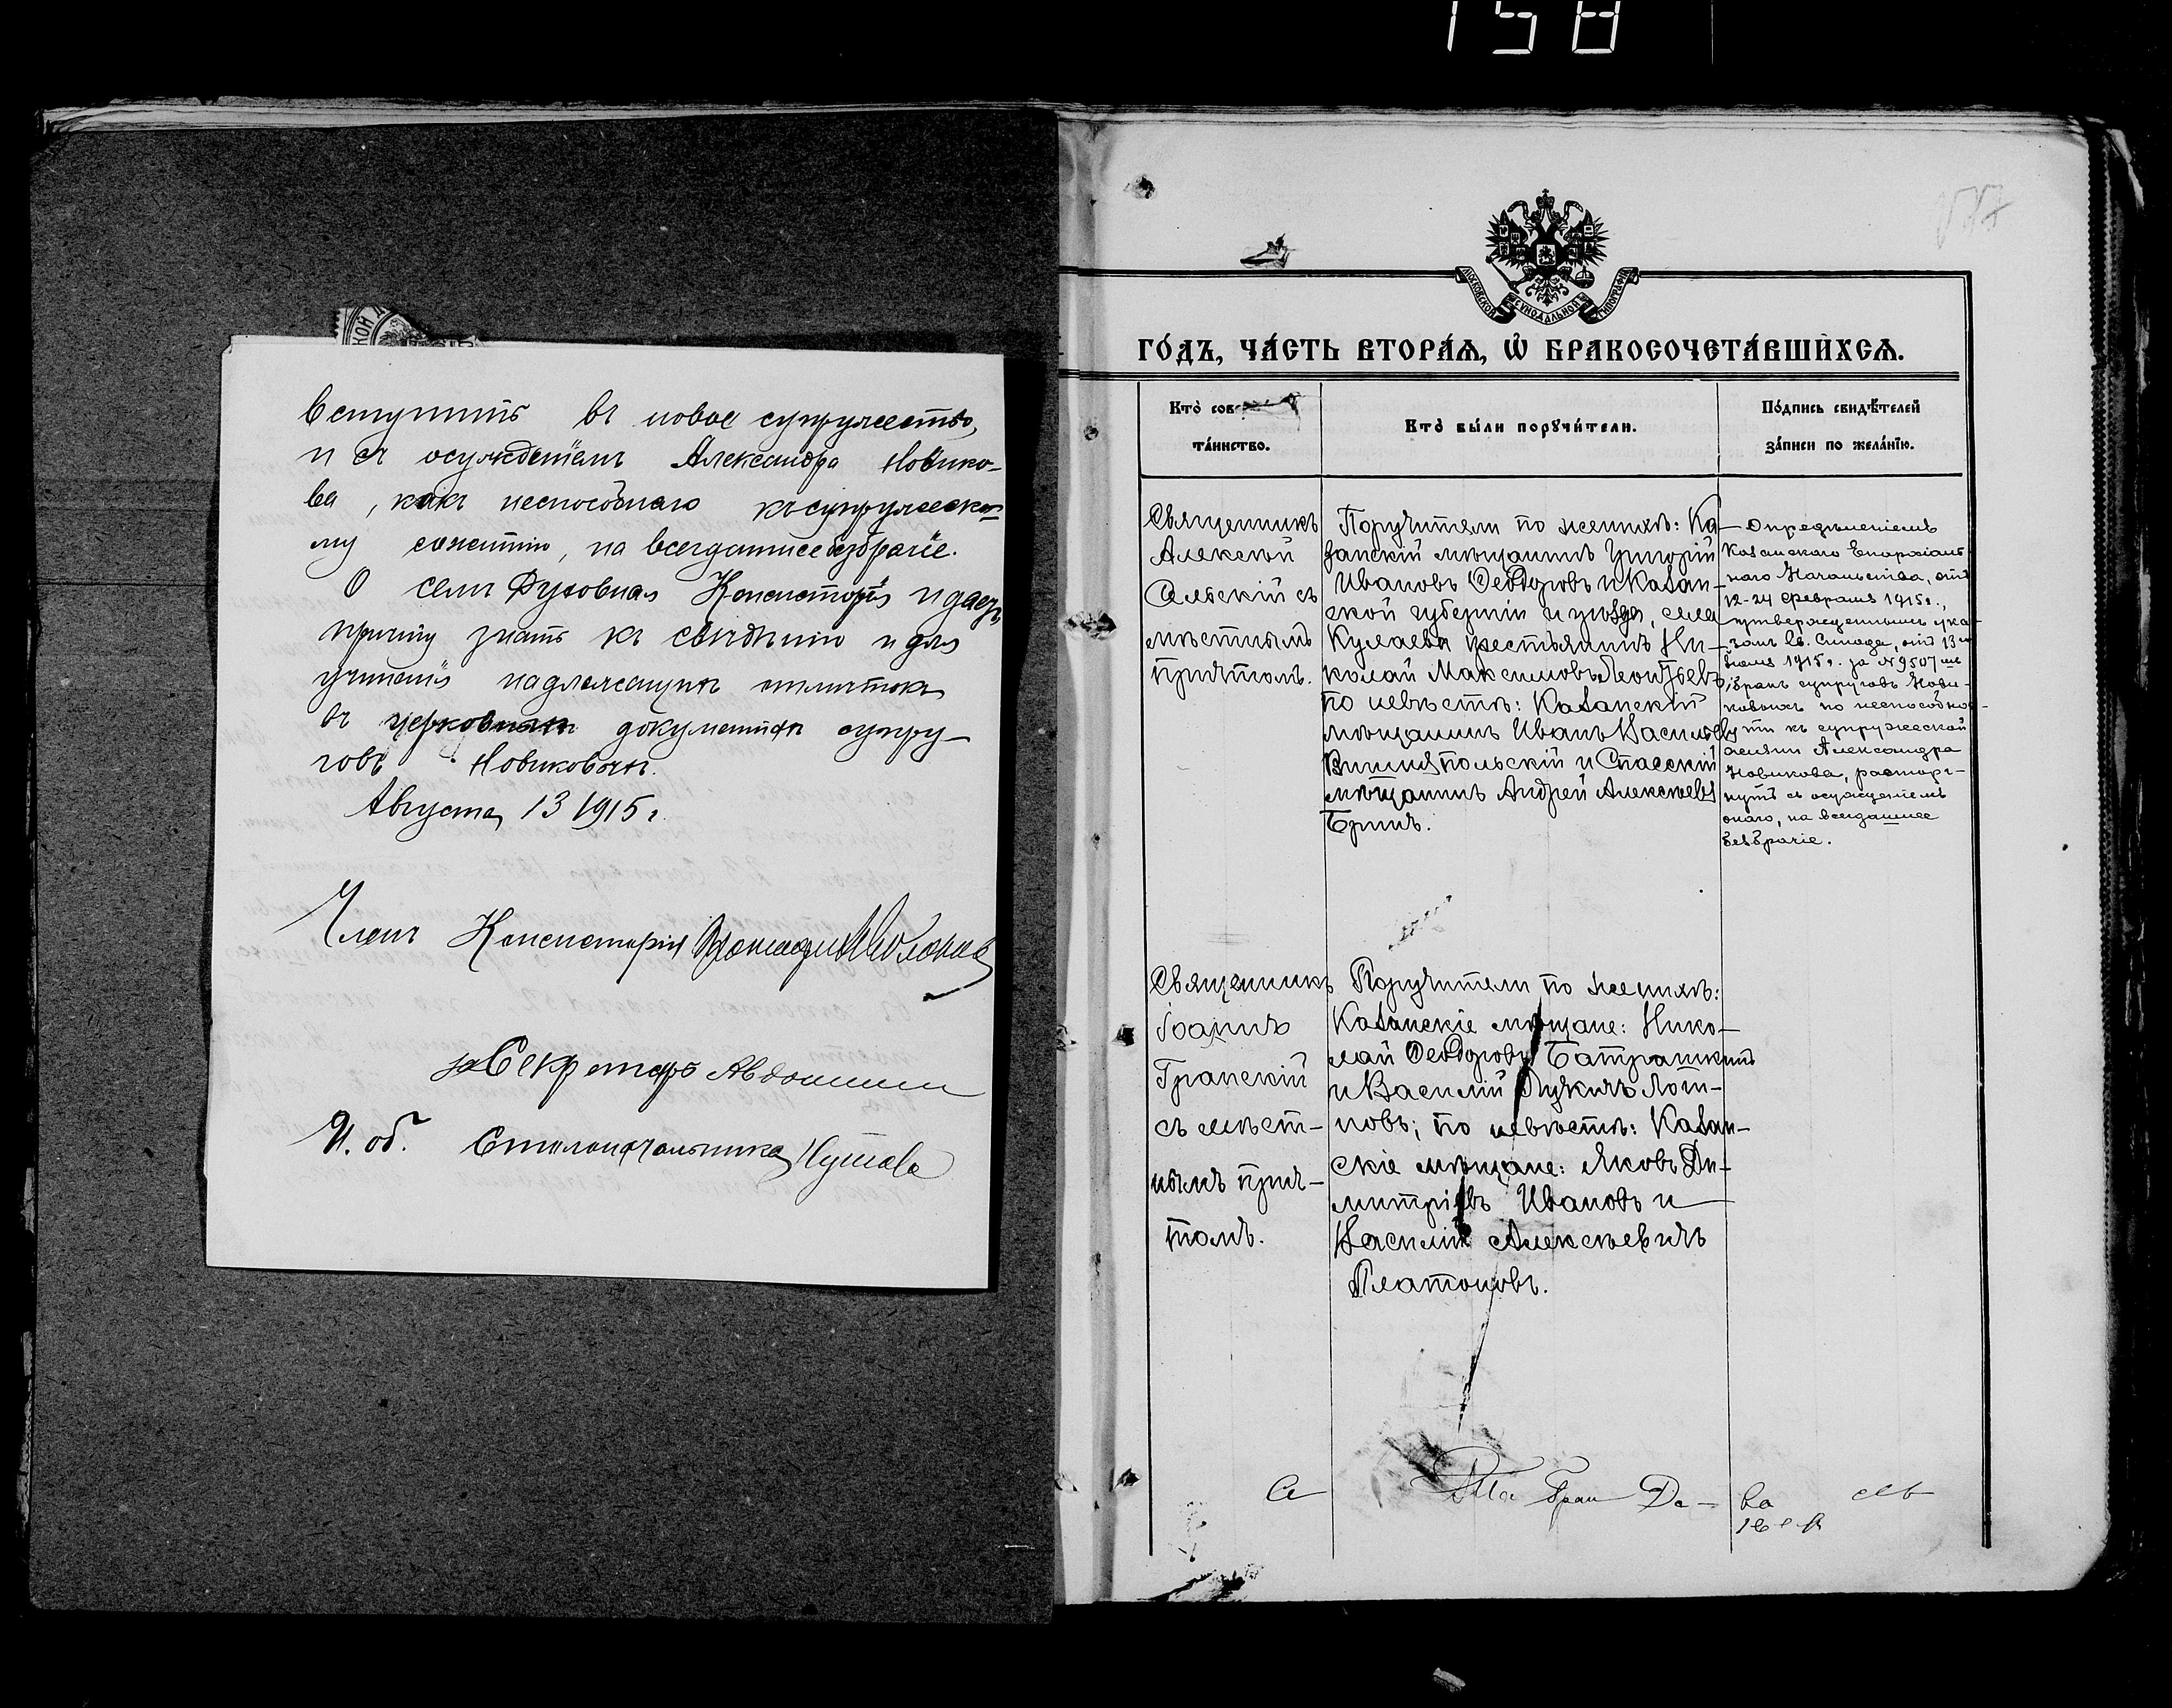 158
вступить въ новое супружество,
и съ осужденіемъ Александра Новико-
ва, какъ неспособнаго къ супружеско-
му сожитію, на всегдашнее безбрачіе.
О семъ Духовная Консисторія и даетъ
причту знать къ свѣдѣнію и для
учиненія надлежащихъ отмѣтокъ
въ церковныхъ документахъ супру-
говъ Новиковыхъ.
Августа 13 1915 г.
Членъ Консисторіи
за Секретаря
И. об. Столоначальника
МОСКОВСКОЙ СѴНОДАЛЬНОЙ ТИПОГРАФІИ
ГО́ДЪ, ЧА́СТЬ ВТОРА́Ѧ, Ѽ БРАКОСОЧЕТА́ВШИХСѦ.
Кто̀ сов
та́инство.
Кто̀ бы́ли порꙋчи́тели.
По́дпись свидѣ́телей
за́писи по жела́нїю.
Священникъ
Алексѣй
Сельскій съ
мѣстнымъ
причтомъ.
Поручители по женихѣ: Ка-
занскій мѣщанинъ Григорій
Ивановъ Ѳеодоровъ и Казан-
ской губерніи и уѣзда, села
Кулаева крестьянинъ Ни-
колай Максимовъ Леонтьевъ,
по невѣстѣ: Казанскій
мѣщанинъ Иванъ Васильевъ
и Спасскій
мѣщанинъ Андрей Алексѣевъ
Опредѣленіемъ
Казанскаго Епархіаль-
наго Начальства, отъ
12-24 февраля 1915 г.,
утвержденнымъ ука-
зомъ Св. Синода, отъ 13
іюля 1915 г. за № 9507
бракъ супруговъ Нови-
ковыхъ по неспособно-
сти къ супружеской
жизни Александра
Новикова, расторг-
нутъ съ осужденіемъ
онаго, на всегдашнее
безбрачіе.
Священникъ
Іоаннъ
Гранскій
съ мѣст-
нымъ прич-
томъ.
Поручители по женихѣ:
Казанскіе мѣщане: Нико-
лай Ѳеодоровъ Батрашкинъ
и Василій Лукичъ Логи-
новъ; по невѣстѣ: Казан-
скіе мѣщане: Яковъ Ди-
митріевъ Ивановъ и
Василій Алексѣевичъ
Платоновъ.